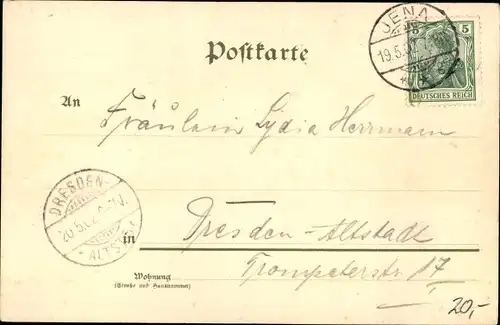 JENA
19.5.
5
DEUTSCHES REICH
Postkarte
An Fräulein Lydia Herrmann
DRESDEN
20.5.02
ALTST.
in Dresden-Altstadt
Trompeterstr. 17
Wohnung
(Straße und Hausnummer)
20,-